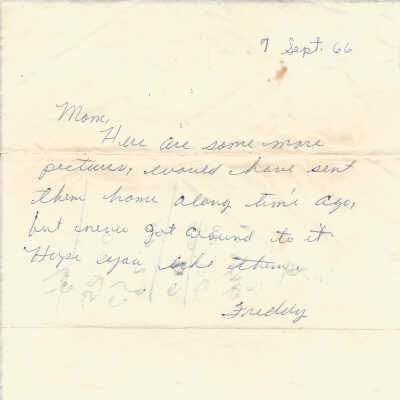 7 Sept. 66
Mom,
Here are some more
pictures, would have sent
them home along time ago,
but never got around to it
Hope you like them
Freddy